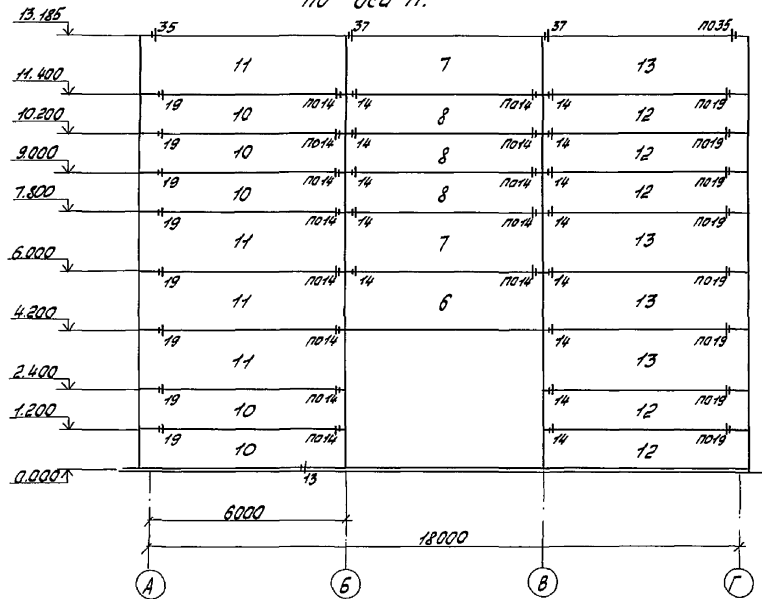 по оси 11.
13.185 35 37 37 по35
11 7 13
11.400
19 по14 14 14 по19
10 8 12
10.200
19 по14 14 14 по19
10 8 12
9.000
19 по14 14 14 по19
10 8 12
7.800
19 по14 14 14 по19
11 7 13
6.000
19 по14 14 14 по19
11 6 13
4.200
19 по14 14 по19
11 13
2.400
19 по14 14 по19
10 12
1.200
19 по14 14 по19
10 12
0.000
13
6000
18000
А Б В Г